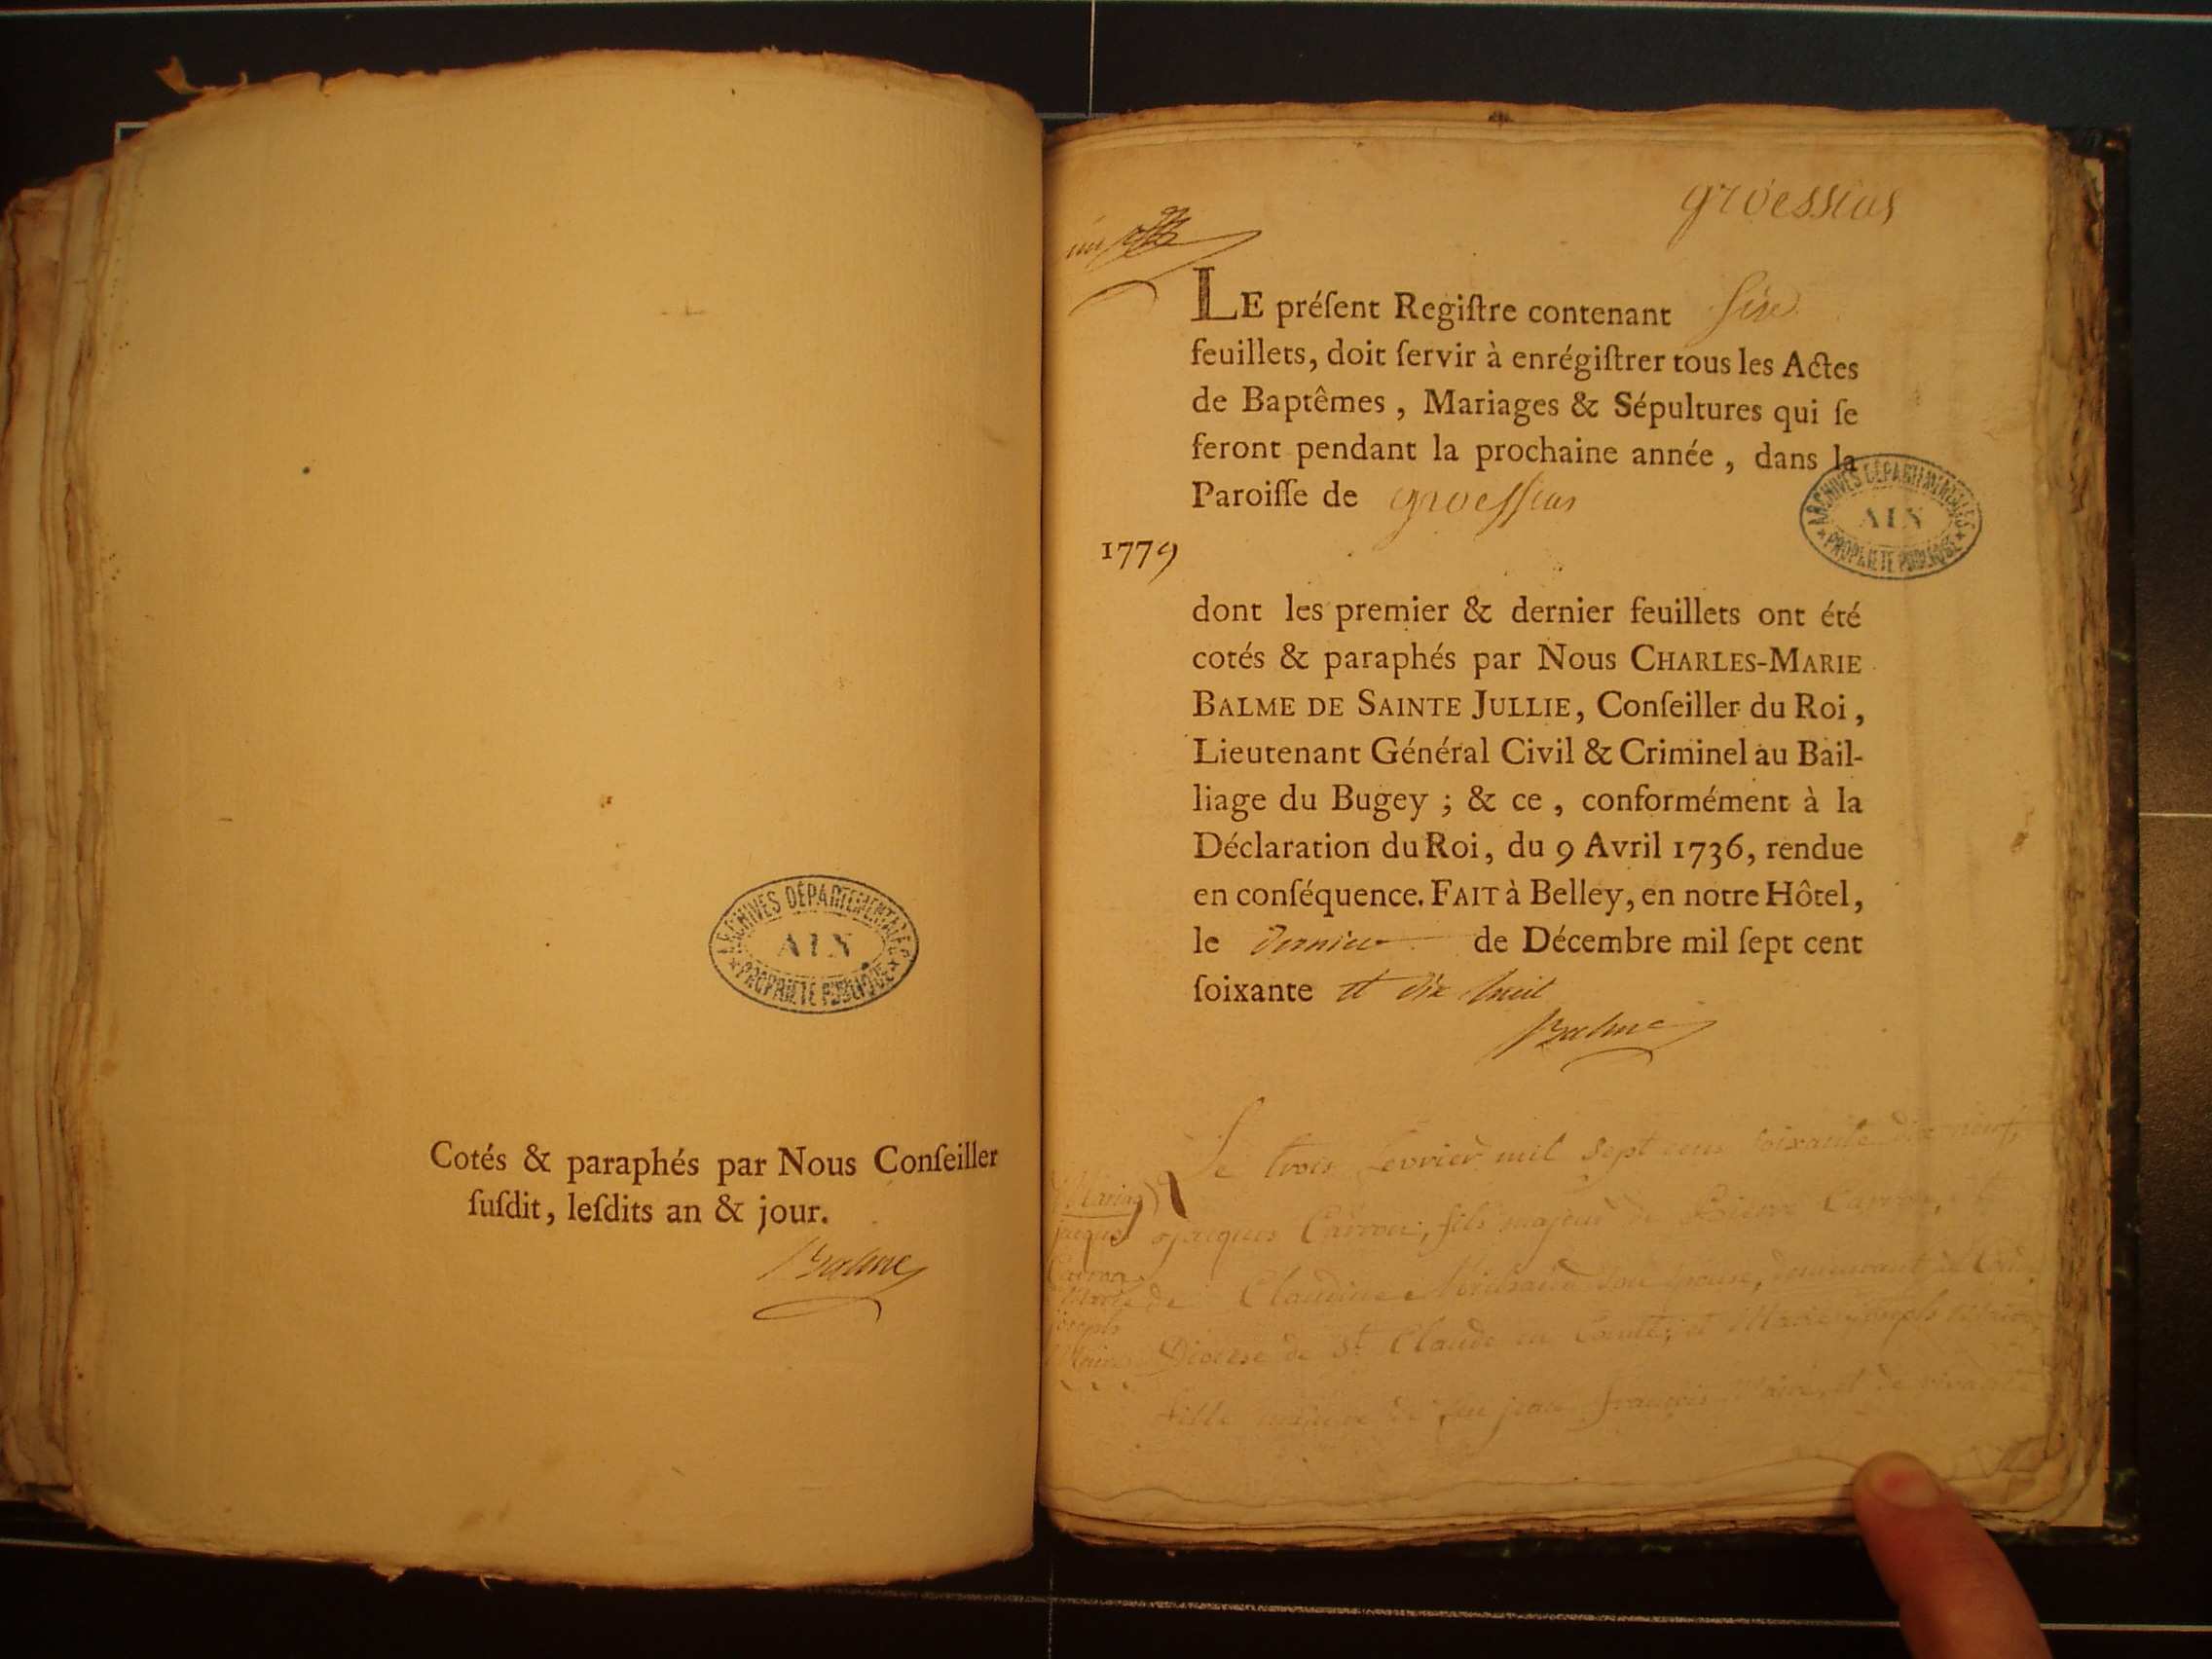 ARCHIVES DÉPARTEMENTALES
AIN
PROPRIÉTÉ PUBLIQUE
Cotés & paraphés par Nous Conſeiller
ſuſdit, leſdits an & jour.
Balme
groessias
LE préſent Regiſtre contenant
feuillets, doit ſervir à enrégiſtrer tous les Actes
de Baptêmes, Mariages & Sépultures qui ſe
feront pendant la prochaine année, dans la
Paroiſſe de groeſsias
ARCHIVES DÉPARTEMENTALES
AIN
PROPRIÉTÉ PUBLIQUE
1779
dont les premier & dernier feuillets ont été
cotés & paraphés par Nous CHARLES-MARIE
BALME DE SAINTE JULLIE, Conſeiller du Roi,
Lieutenant Général Civil & Criminel au Bail-
liage du Bugey ; & ce, conformément à la
Déclaration du Roi, du 9 Avril 1736, rendue
en conſéquence. FAIT à Belley, en notre Hôtel,
le dernier de Décembre mil ſept cent
ſoixante et dix huit
Balme
Le trois fevrier mil sept cens soixante dix neuf,
jacques Carron, fils majeur de Pierre Carron, et
de Claudine son epouse, demeurant
Diocese de St. Claude en Comté, et Marie joseph
fille de feu jean françois et de vivante
Mariag
jacques
Carron
Marie
joseph